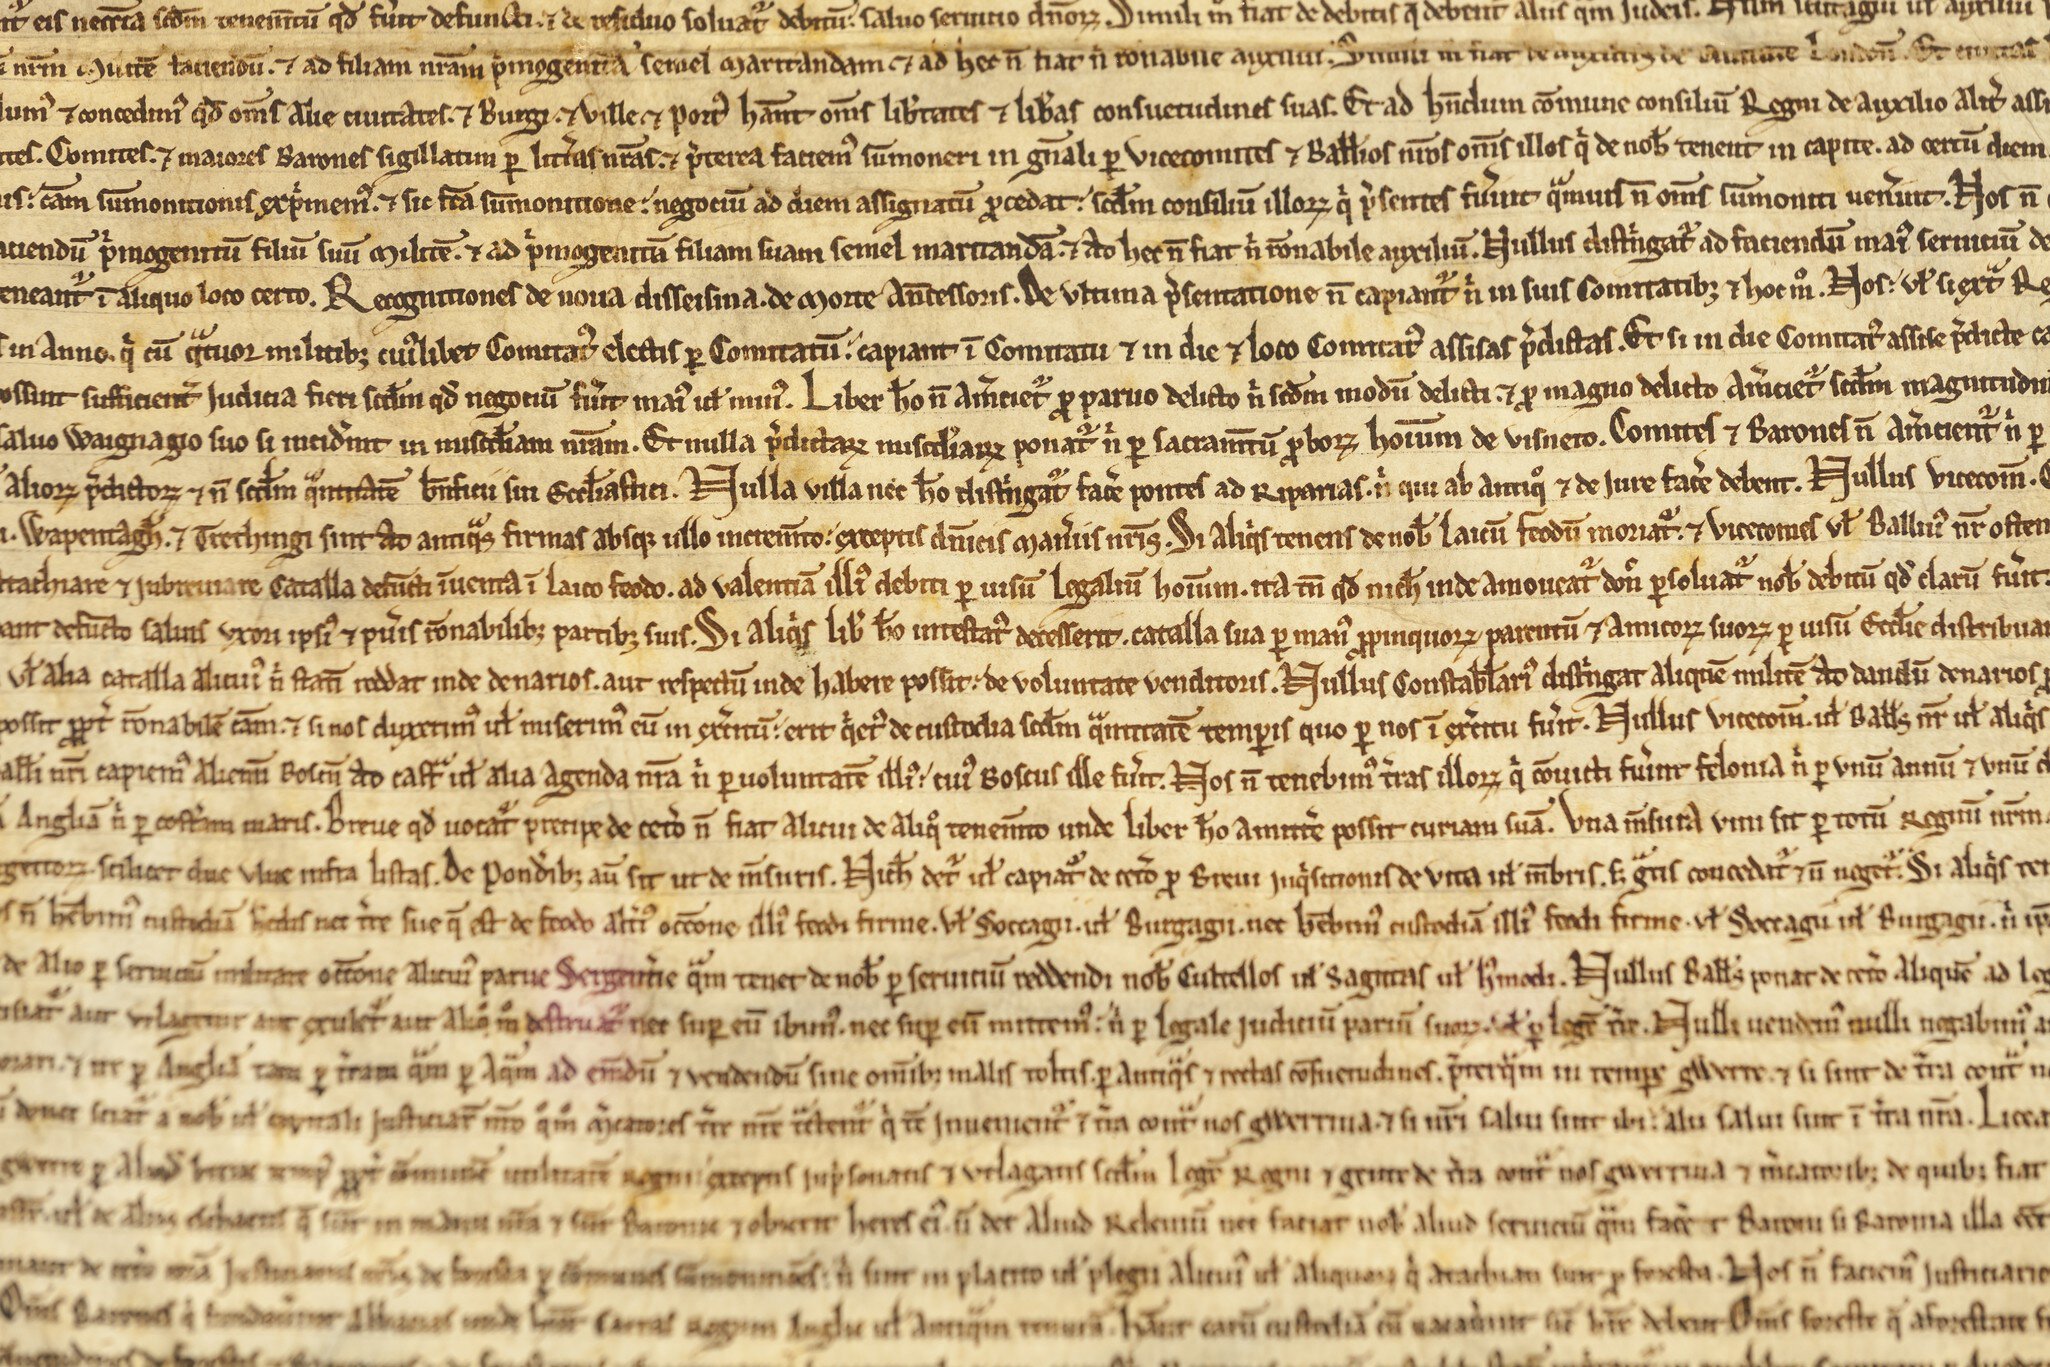 eis neccīa scdm tenemtū qd fu̓it defuncti. ⁊ de residuo soluat᷑ debitū. saluo seruitio dn̄oꝝ. Simili m̊ fiat de debitis q̄ debent᷑ aliis q̄m Judeis.
nr̄m Militē faciendū. ⁊ ad filiam nr̄am p̓mogenitā semel maritandam. ⁊ ad hec n̄ fiat n̓ rōnabile auxiliū. Simili m̊ fiat de auxiliis de Ciuitate London̄. Et ciuitas
⁊ concedim᷒ qd̓ om̄s alie ciuitates. ⁊ Burgi. ⁊ Ville. ⁊ Port᷒ hēant om̄s lib̓tates ⁊ lib̓as consuetudines suas. Et ad hn̄dum cōmune consiliū Regni de auxilio alit̓
Comites. ⁊ maiores Barones sigillatim ꝑ litt̓as nr̄as. ⁊ p̓terea faciem᷒ sūmoneri in gn̄ali ꝑ vicecomites ⁊ Balliuos nr̄os om̄s illos q̓ de nob̓ tenent in capite. ad certū diem
cām sūmonitionis exp̓mem᷒. ⁊ sic f̄ca sūmonitione: negociū ad diem assignatū ꝓcedat: scdm consiliū illoꝝ q̓ p̓sentes fu̓int qᷓmuis n̄ om̄s sūmoniti ven̓int. Nos n̄
p̓mogenitū filiū suū Militē. ⁊ ad p̓mogenitā filiam suam semel maritandā. ⁊ ad hec n̄ fiat n̓ rōnabile auxiliū. Nullus dist̓ngat᷑ ad faciendū mai᷒ seruiciū de
teneant᷑ ī aliquo loco certo. Recognitiones de noua disseisina. de morte An̄cessoris. De Vltima p̓sentatione n̄ capiant᷑ n̓ in suis Comitatibꝫ ⁊ hoc m̊. Nos: vl̓ si ext̓
in Anno. q̓ cū qᷓtuor militibꝫ cui᷒libet Comitat᷒ electis ꝑ Comitatū: capiant ī Comitatu ⁊ in die ⁊ loco Comitat᷒ assisas p̓dictas. Et si in die Comitat᷒ assise p̓dicte
possint sufficient̓ Judicia fieri scdm qd̓ negociū fu̓it mai᷒ ul̓ min᷒. Liber hō n̄ am̓ciet᷑ ꝓ paruo delicto n̓ scdm modū delicti. ⁊ ꝓ magno delicto Am̓ciet᷑ scdm
saluo Waignagio suo si incid̓int in mis̓cdiam nr̄am. Et nulla p̓dictaꝝ mis̓cdiaꝝ ponat᷑ n̓ ꝑ sacramtū ꝓboꝝ hoīum de visneto. Comites ⁊ Barones n̄ am̓cient᷑ n̓ ꝑ
Alioꝝ p̓dictoꝝ ⁊ n̄ scdm qᷓntitatē bn̄ficii sui Eccl̓iastici. Nulla villa nec hō dist̓ngat᷑ fac̓e pontes ad Riparias. n̓ qui ab antiq̊ ⁊ de Jure fac̓e debent. Nullus vicecom̄.
Wapentagh̓. ⁊ Trethingi sint ad antiqᷓs firmas absqꝫ ullo incremto: exceptis dn̄icis Man̓iis nr̄is. Si aliq̓s tenens de nob̓ laicū feodū moriat᷑. ⁊ Vicecomes vl̓ Balliu᷒ nr̄
attachiare ⁊ Jnbreuiare Catalla defūcti īuenta ī laico feodo. ad valentiā illi᷒ debiti ꝑ uisū legaliū hoīum. ita tn̄ qd̓ nich̓ inde amoueat᷑ don̓ ꝑsoluat᷑ nob̓ debitū qd̓ clarū fu̓it.
defūcto saluis vxori ipsi᷒ ⁊ pu̓is rōnabilibꝫ partibꝫ suis. Si aliq̓s lib̓ hō intestat᷒ decesserit. catalla sua ꝑ man᷒ ꝓpinquoꝝ parentū ⁊ amicoꝝ suoꝝ ꝑ uisū Eccl̓ie
vl̓ alia catalla alicui᷒ n̓ statī reddat inde denarios. aut respectū inde habere possit: de voluntate venditoris. Nullus Constabl̓ari᷒ dist̓ngat aliquē militē ad dandū denarios
possit ꝓpt̓ rōnabilē cām. ⁊ si nos duxerim᷒ ul̓ miserim᷒ eū in ex̓citū: erit q̓et᷒ de custodia scdm qᷓntitatē temꝑis quo ꝑ nos ī ex̓citu fu̓it. Nullus vicecom̄. ul̓ Ball̓s nr̄ ul̓ aliq̓s
nr̄i capiem᷒ alienū Boscū ad castr̓ ul̓ alia agenda nr̄a n̓ ꝑ voluntatē illi᷒: cui᷒ Boscus ille fu̓it. Nos n̄ tenebim᷒ t̓ras illoꝝ q̓ cōuicti fu̓int felonia n̓ ꝑ vnū annū ⁊ vnū
Angliā n̓ ꝑ cost̓am maris. Breue qd̓ uocat᷑ precipe de cet̓o n̄ fiat alicui de aliq̊ tenemto unde liber hō amitt̓e possit curiam suā. Vna m̄sura vini sit ꝑ totū Regnū nr̄m.
scilicet due vlne infra listas. De Pond̓ibꝫ aū sit ut de m̄suris. Nich̓ det᷑ ul̓ capiat᷑ de cet̓o ꝓ Breui Jnq̓sitionis de vita ul̓ m̄bris. s; gᷓtis concedat᷑ ⁊ n̄ neget᷑. Si aliq̓s
n̄ heb̓im᷒ custodiā h̓edis nec t̓re sue q̄ est de feodo alt̓i᷒ occōne illi᷒ feodi firme. vl̓ Soccagii. ul̓ Burgagii. nec heb̓im᷒ custodiā illi᷒ feodi firme. vl̓ Soccagii ul̓ Burgagii. n̓
de alio ꝑ seruiciū militare occōne alicui᷒ parue Sergent̓ie qᷓm tenet de nob̓ ꝑ seruiciū reddendi nob̓ Cultellos ul̓ Sagittas ul̓ h̓modi. Nullus Ball̓s ponat de cet̓o aliquē ad
aut vtlagetur aut exulet᷑ aut aliq̊ m̊ destruat᷑ nec suꝑ eū ibim᷒. nec suꝑ eū mittem᷒: n̓ ꝑ legale judiciū pariū suoꝝ. ul̓ ꝑ legē t̓re. Nulli uendem᷒ nulli negabim᷒
⁊ ire ꝑ Angliā tam ꝑ t̓ram qᷓm ꝑ aqᷓm ad emdū ⁊ vendendū sine om̄ibꝫ malis toltis. ꝑ antiqᷓs ⁊ rectas cōsuetudines. p̓terqᷓm in tempe gwerre. ⁊ si sint de t̓ra cont̓
donec sciat᷑ a nob̓ ul̓ capitali justiciar̓ nr̄o q̊m̊ m̓catores t̓re nr̄e t̓ctent᷑ q̓ tc̄ Jnuenient᷑ ī t̓ra cont̓ nos gwerriua. ⁊ si nr̄i salui sint ibi: alii salui sint ī t̓ra nr̄a.
gwerre ꝑ aliqd̓ breue temp᷒ ꝓpt̓ cōmunē utilitatē Regni. exceptis Jmp̓sonatis ⁊ vtlagatis scdm legē Regni ⁊ gente de t̓ra cont̓ nos gwerriua ⁊ m̓catoribꝫ de quibꝫ fiat
ul̓ de aliis eschaetis q̄ sūt in manu nr̄a ⁊ sūt Baronie ⁊ obierit heres ei᷒ n̄ det aliud Releuiū nec faciat nob̓ aliud seruiciū qᷓm fac̓et Baroni si Baronia illa
de cet̓o corā Justiciariis nr̄is de foresta ꝑ cōmunes sūmonitiōes: n̓ sint in placito ul̓ plegii alicui᷒ ul̓ aliquoꝝ q̓ attachiati sint ꝓ foresta. Nos n̄ faciem᷒ Justiciarios
Om̄s Barones q̓ fundau̓unt Abbatias unde hn̄t Cartas Regum Anglie ul̓ antiquā tenurā. hēant eaꝝ custodiā cū vacau̓int sic̄ hr̄e debent. Om̄s foreste q̄ aforestate